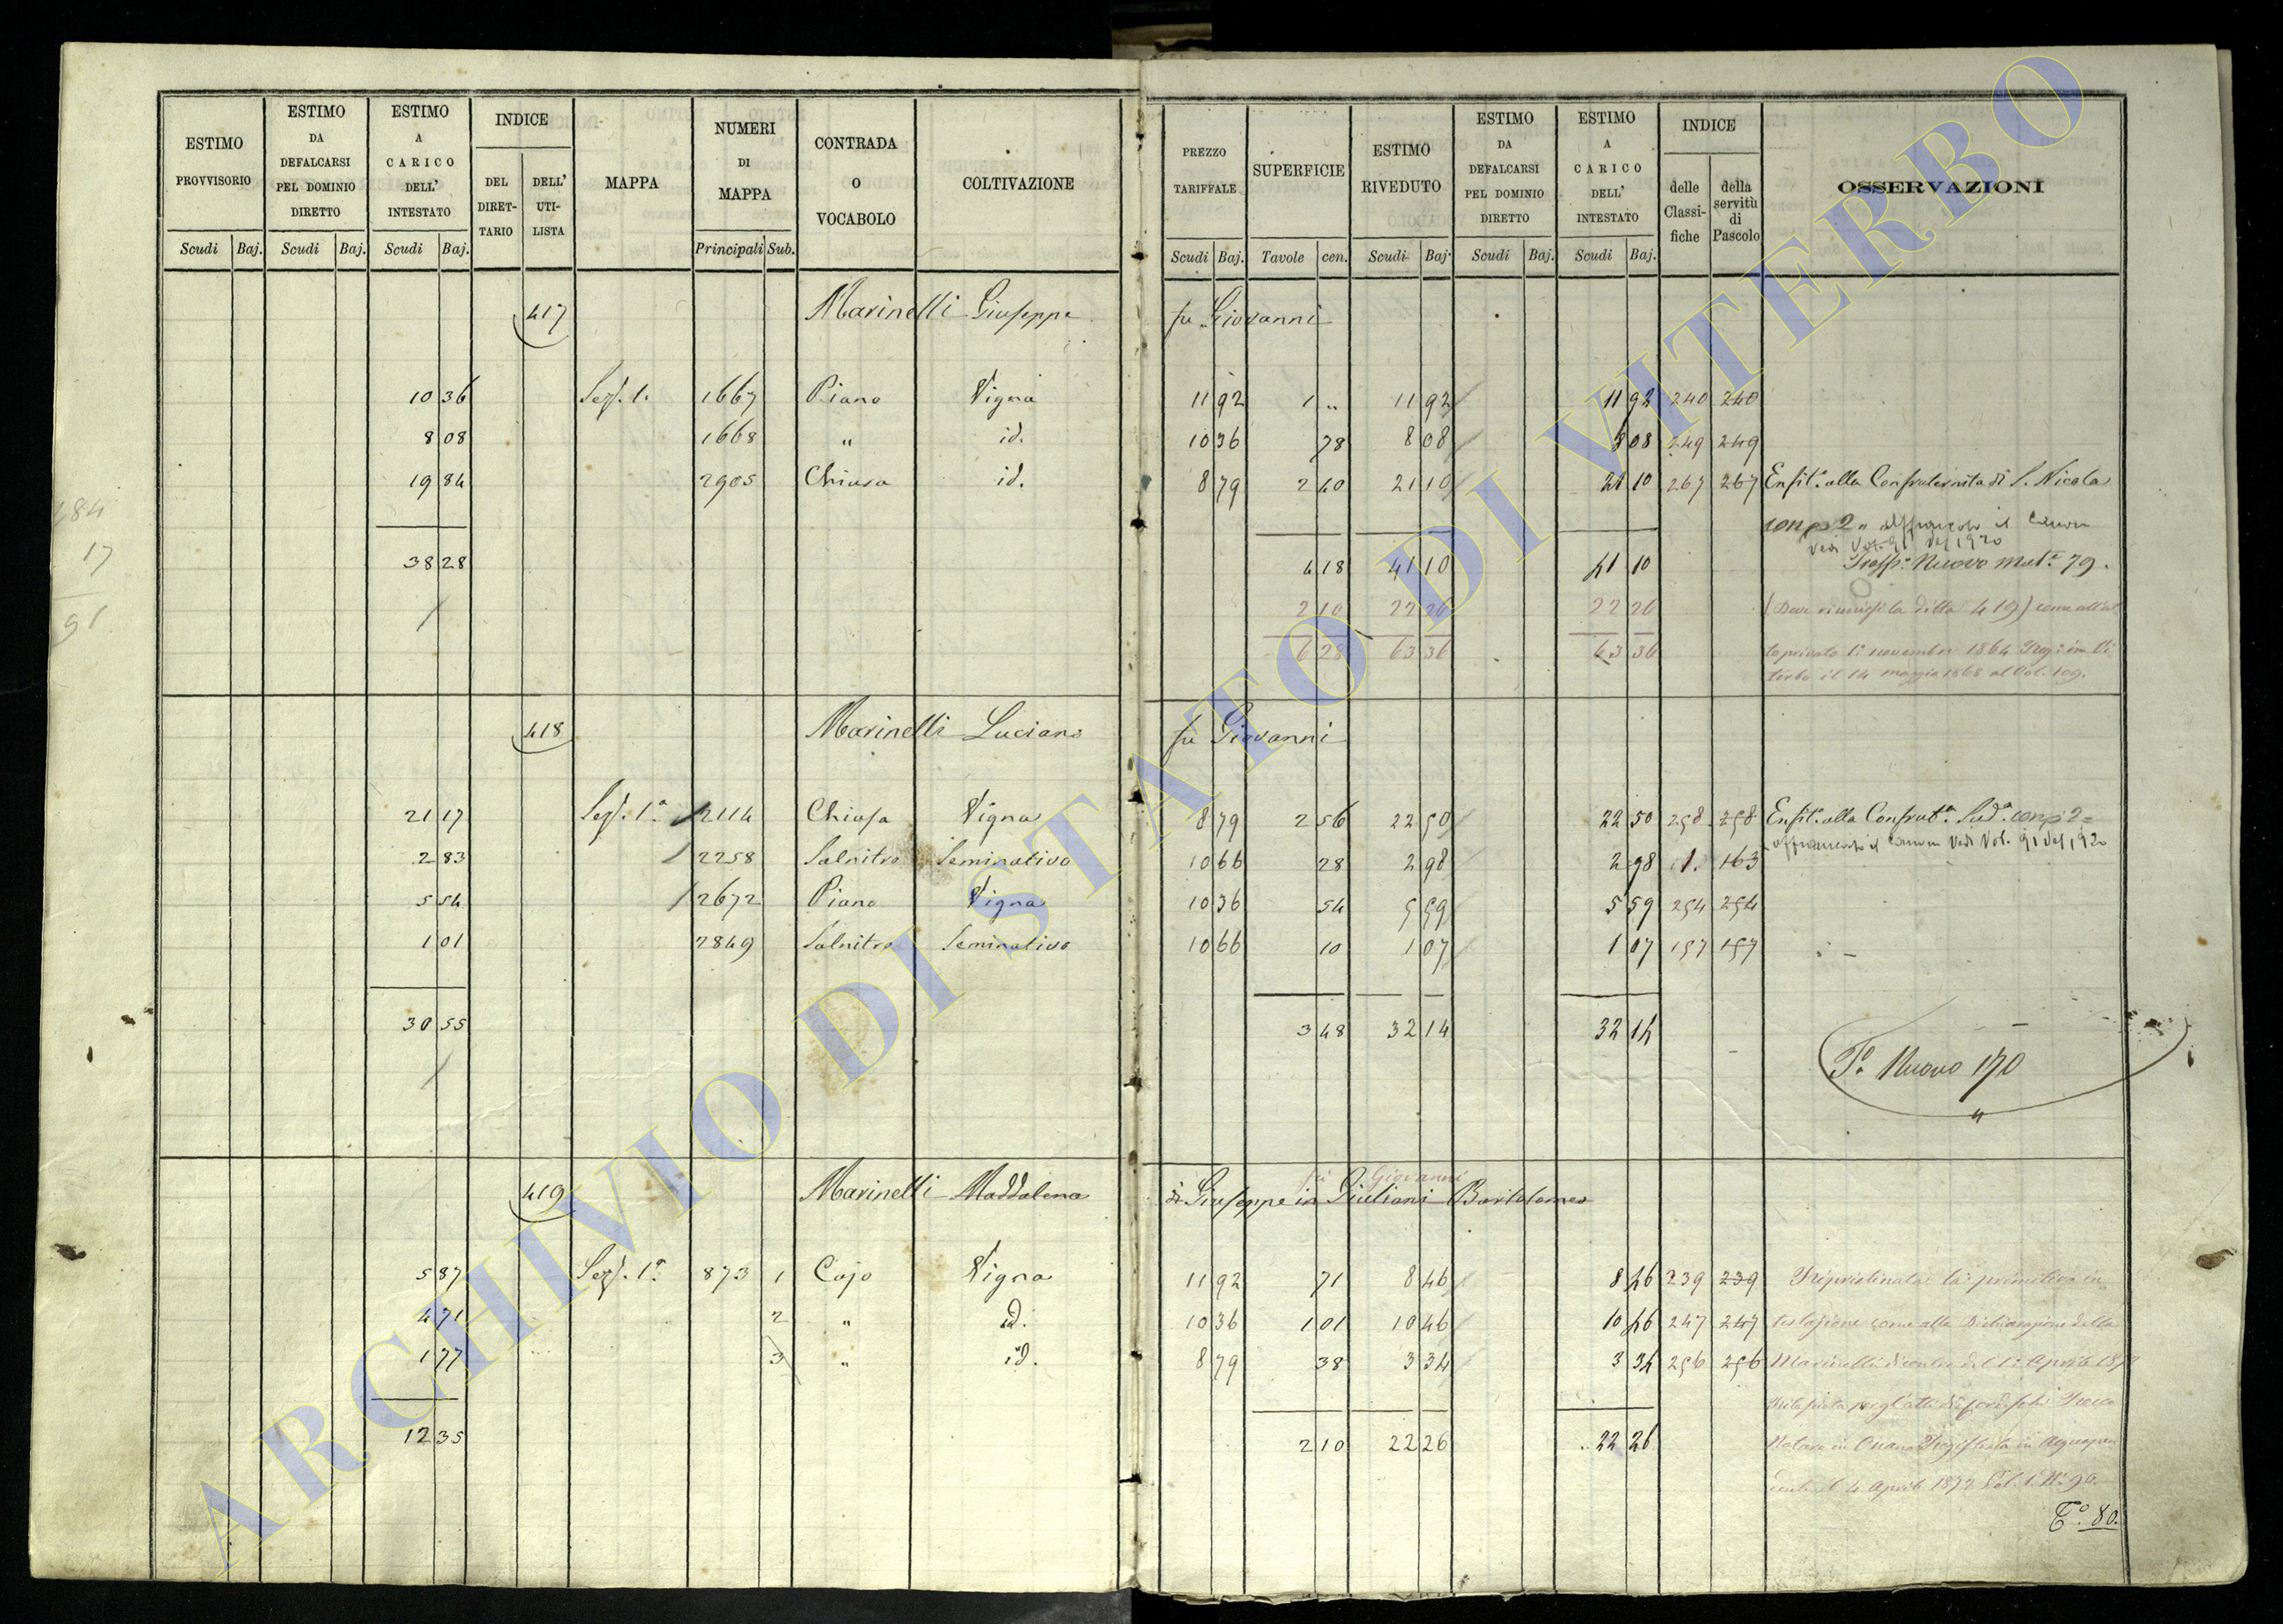 ESTIMO PROVVISORIO | ESTIMO DA DEFALCARSI PEL DOMINIO DIRETTO | ESTIMO A CARICO DELL' INTESTATO | INDICE | MAPPA | NUMERI DI MAPPA | CONTRADA O VOCABOLO | COLTIVAZIONE | PREZZO TARIFFALE | SUPERFICIE | ESTIMO RIVEDUTO | ESTIMO DA DEFALCARSI PEL DOMINIO DIRETTO | ESTIMO A CARICO DELL' INTESTATO | INDICE | OSSERVAZIONI
DEL DIRET-TARIO | DELL' UTI-LISTA | delle Classi-fiche | della servitù di Pascolo
Scudi Baj. | Scudi Baj. | Scudi Baj. | Principali Sub. | Scudi Baj. | Tavole cen. | Scudi Baj. | Scudi Baj. | Scudi Baj.
417 Marinelli Giuseppe fu Giovanni
10 36 Sez. 1. 1667 Piano Vigna 11 92 1 „ 11 92 11 92 240 240
8 08 1668 „ id. 10 36 78 8 08 8 08 249 249
19 84 2905 Chiusa id. 8 79 2 40 21 10 21 10 267 267 Enfit.a alla Confraternita di S. Nicola
184
con 2 „ il Canone
17
Vedi Vol. 91 del 1920
38 28 4 18 41 10 41 10 Trasp.o Nuovo Mat.e 79.
91
2 10 22 26 22 26 (Deve riunirsi la ditta 419) come all'at
6 28 63 36 63 36 to privato 1.o novembre 1864 Reg. in Vi
terbo il 14 maggio 1868 al Vol. 109.
418 Marinelli Luciano fu Giovanni
21 17 Sez. 1.a 2114 Chiusa Vigna 8 79 2 56 22 50 22 50 258 258 Enfit.a alla Confrat.a Sud.a con 2 =
il Canone Vedi Vol. 91 del 1920
2 83 2258 Salnitro Seminativo 10 66 28 2 98 2 98 1. 163
5 54 2672 Piano Vigna 10 36 54 5 59 5 59 254 254
1 01 2849 Salnitro Seminativo 10 66 10 1 07 1 07 157 157
30 55 3 48 32 14 32 14
T.o Nuovo 170
„
419 Marinelli Maddalena di Giuseppe in Giuliani Bartolomeo
fu Giovanni
5 87 Sez. 1.a 873 1 Cajo Vigna 11 92 71 8 46 8 46 239 239 Ripristinata la primitiva in
4 71 2 „ id. 10 36 1 01 10 46 10 46 247 247 testazione come alla Dichiarazione della
1 77 3 „ id. 8 79 38 3 34 3 34 256 256 Marinelli del 1.o Aprile 1872
12 35 2 10 22 26 22 26
Notaro in Onano Registrata in Acquapen
dente il 4 Aprile 1872 Vol. 1. N.o 90.
T.o 80.
ARCHIVIO DI STATO DI VITERBO